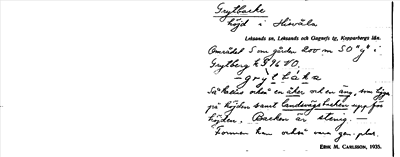 Grytbacke
höjd i Hisvåla
Leksands sn, Leksands och Gagnefs tg, Kopparbergs län.
Området S om gården 200 m SO "y" i
Grytberg k3 96 VO.
Så kallas också en åker och en äng, som ligga
på höjden samt landsvägsbacken upp för
höjden. Backen är stenig. —
Formen kan också vara gen. plur.
ERIK M. CARLSSON, 1935.